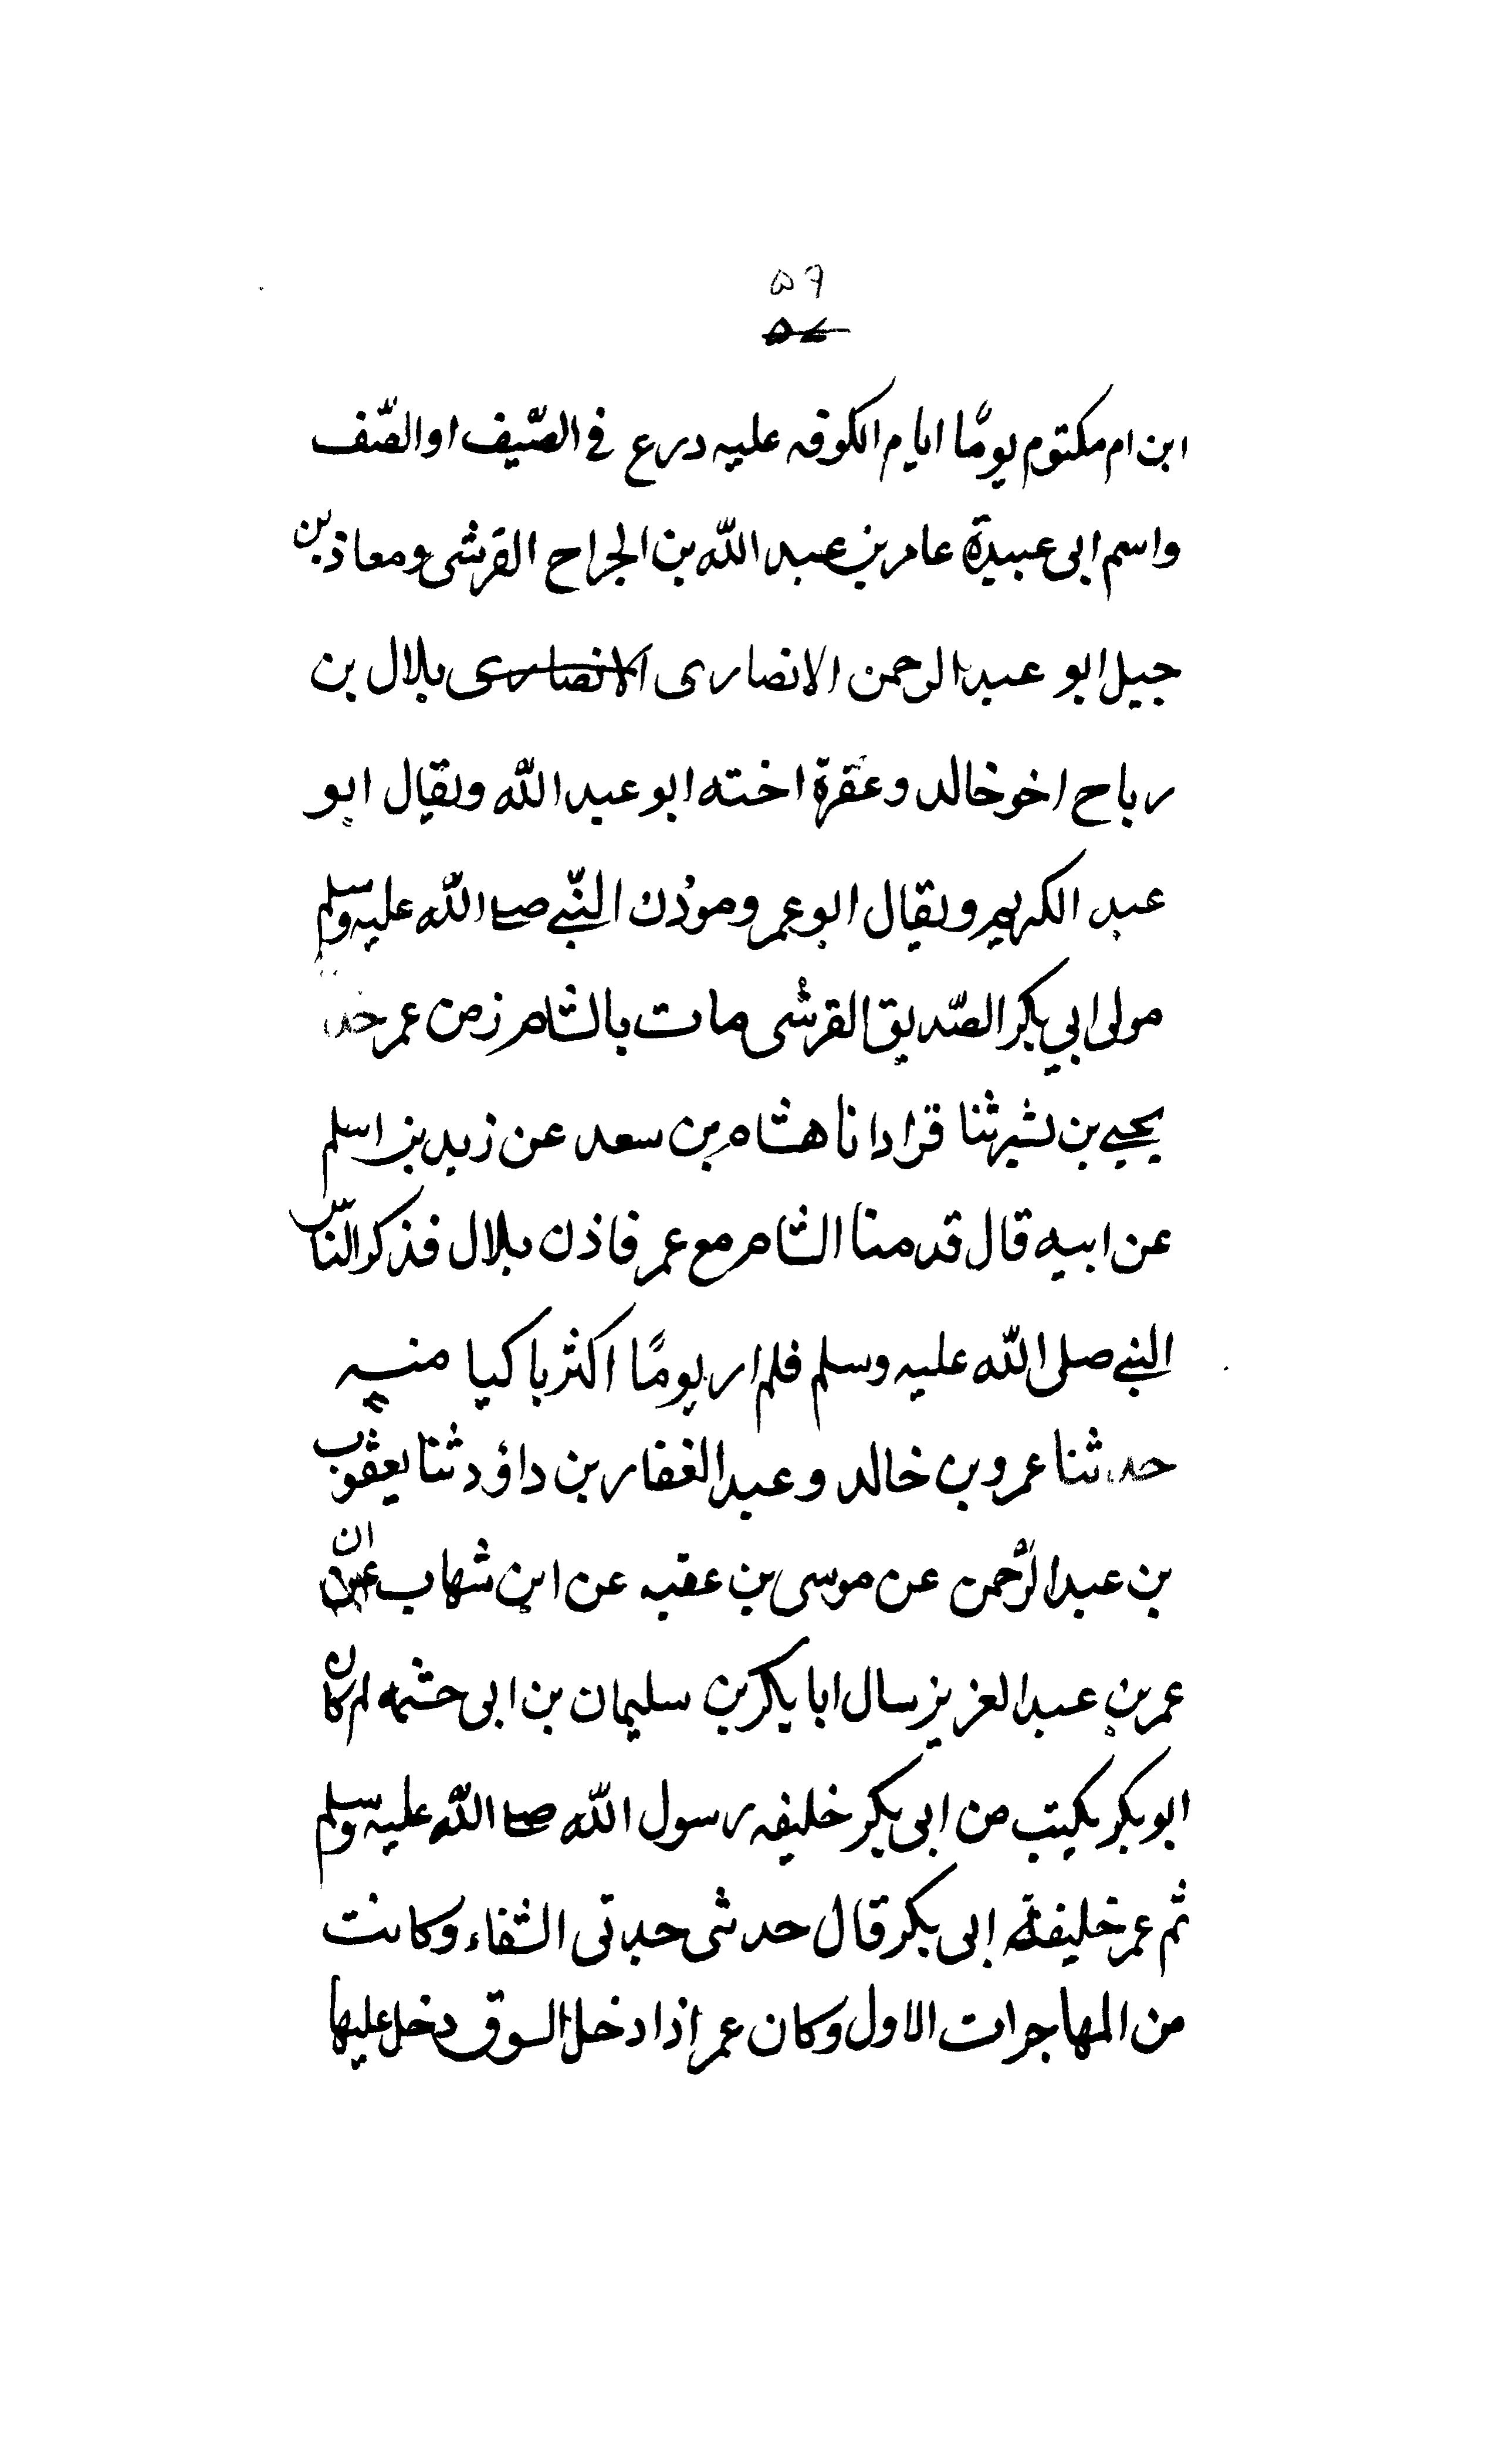 ۵۶
ابن ام مكتوم يومًا ايام الكوفه عليه درع فى الصّيف او الصّف
واسم ابى عبيدة عامر بن عبد الله بن الجراح القرشى ومعاذ بن
جبل ابو عبد الرحمن الانصارى الانصارى بلال بن
رباح اخو خالد وعقرة اخته ابو عبد الله ويقال ابو
عبد الكريم ويقال ابو عمر ومؤذن النّبي صلى الله عليه وسلم
مولى ابي بكر الصّديق القرشى مات بالشام زمن عمر
يحيي بن بشر ثنا قراد انا هشام بن سعد عن زيد بن اسلم
عن ابيه قال قدمنا الشام مع عمر فاذن بلال فذكر النّاس
النبي صلى الله عليه وسلم فلم ار يومًا اكثر باكيا منه
حدثنا عمرو بن خالد وعبد الغفار بن داؤد ثنا يعقوب
بن عبد الرّحمن عن موسى بن عقبه عن ابن شهاب ان
عمر بن عبد العزيز سال ابا بكر بن سليمان بن ابى حثمه لم كان
ابو بكر يكتب من ابى بكر خليفه رسول الله صلى الله عليه وسلم
ثم عمر خليفة ابى بكر قال حدثى جدتى الشفاء وكانت
من المهاجرات الاول وكان عمر اذا دخل السوق دخل عليها